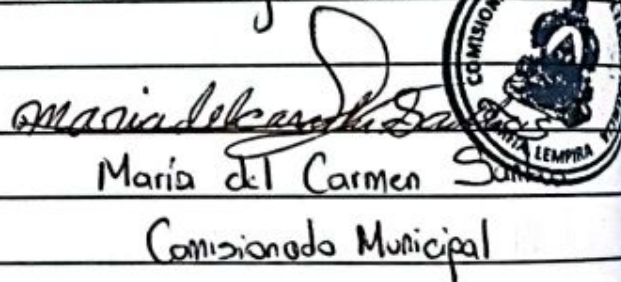 Maria del Carmen Santos
María del Carmen Santos
Comisionado Municipal
COMISION
LEMPIRA